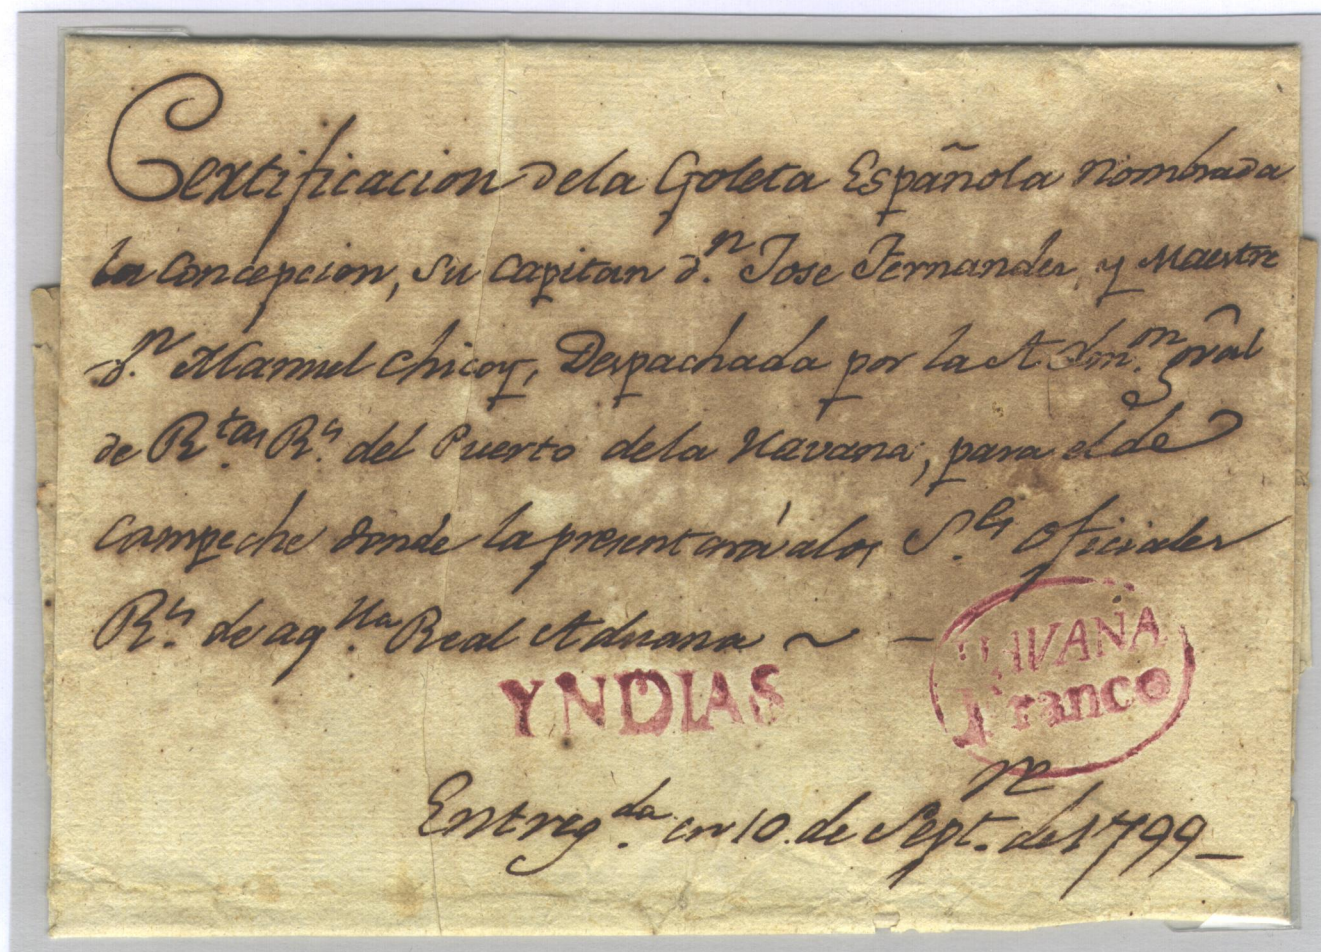 Certificacion dela Goleta Española nombrada
la Concepcion, su Capitan d.ⁿ Jose Fernandez, y Maestre
d.ⁿ Manuel Chicoy, Despachada por la Adm.ᵒⁿ gr̃al
de R.ᵗᵃˢ R.ˢ del Puerto dela Havana, para el de
Campeche donde la presentará alos S.ᵉˢ Oficiales
R.ˢ de aq.ˡˡᵃ Real Aduana ~ -
HAVANA
Franco
YNDIAS
Entreg.ᵈᵃ en 10. de Sept.ʳᵉ de 1799_